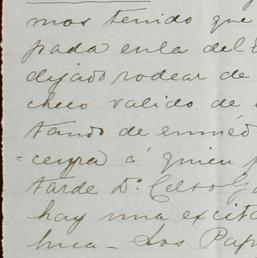 mos tenido que
pada en la del
dejado rodear de
checo valido de
tando de enmed
=cerra á quien
tarde Dn. Celso Ga
hay una excita
bica - Los Pap